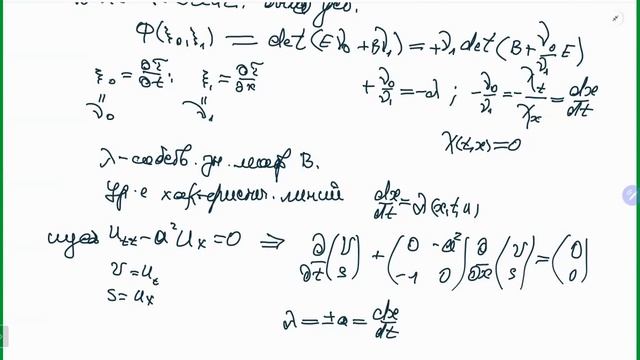 Φ(ξ₀,ξ₁) = det(Eν₀ + Bν₁) = +ν₁ det(B + ν₀/ν₁ E)
ξ₀ = ∂ξ/∂t; ξ₁ = ∂ξ/∂x
+ν₀/ν₁ = -λ; -ν₀/ν₁ = -χ_t/χ_x = dx/dt
ν₀ ν₁
χ(t,x) = 0
λ - собств. зн. матр B.
Ур-е характеристич. линий dx/dt = λ(x,t,u)
u_tt - a²u_x = 0 ⇒ ∂/∂t (v s) + (0 -a² -1 0) ∂/∂x (v s) = (0 0)
v = u_t
s = u_x
λ = ±a = dx/dt